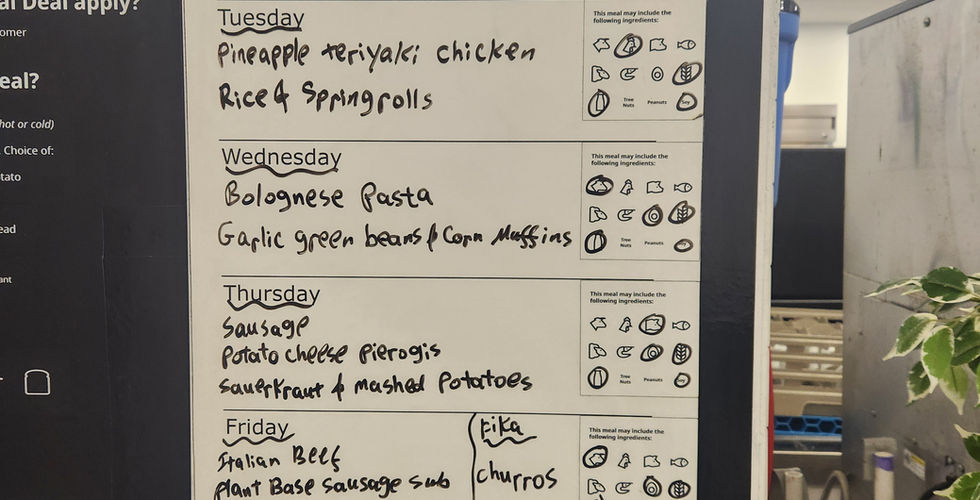 al Deal apply?
omer
eal?
hot or cold)
Choice of:
tato
ead
ant
Tuesday
Pineapple teriyaki chicken
Rice & Springrolls
This meal may include the
following ingredients:
Tree Nuts
Peanuts
Soy
Wednesday
Bolognese Pasta
Garlic green beans & Corn Muffins
This meal may include the
following ingredients:
Tree Nuts
Peanuts
Soy
Thursday
Sausage
Potato cheese Pierogis
Sauerkraut & mashed Potatoes
This meal may include the
following ingredients:
Tree Nuts
Peanuts
Soy
Friday
Italian Beef
Plant Base Sausage sub
Fika
churros
This meal may include the
following ingredients: